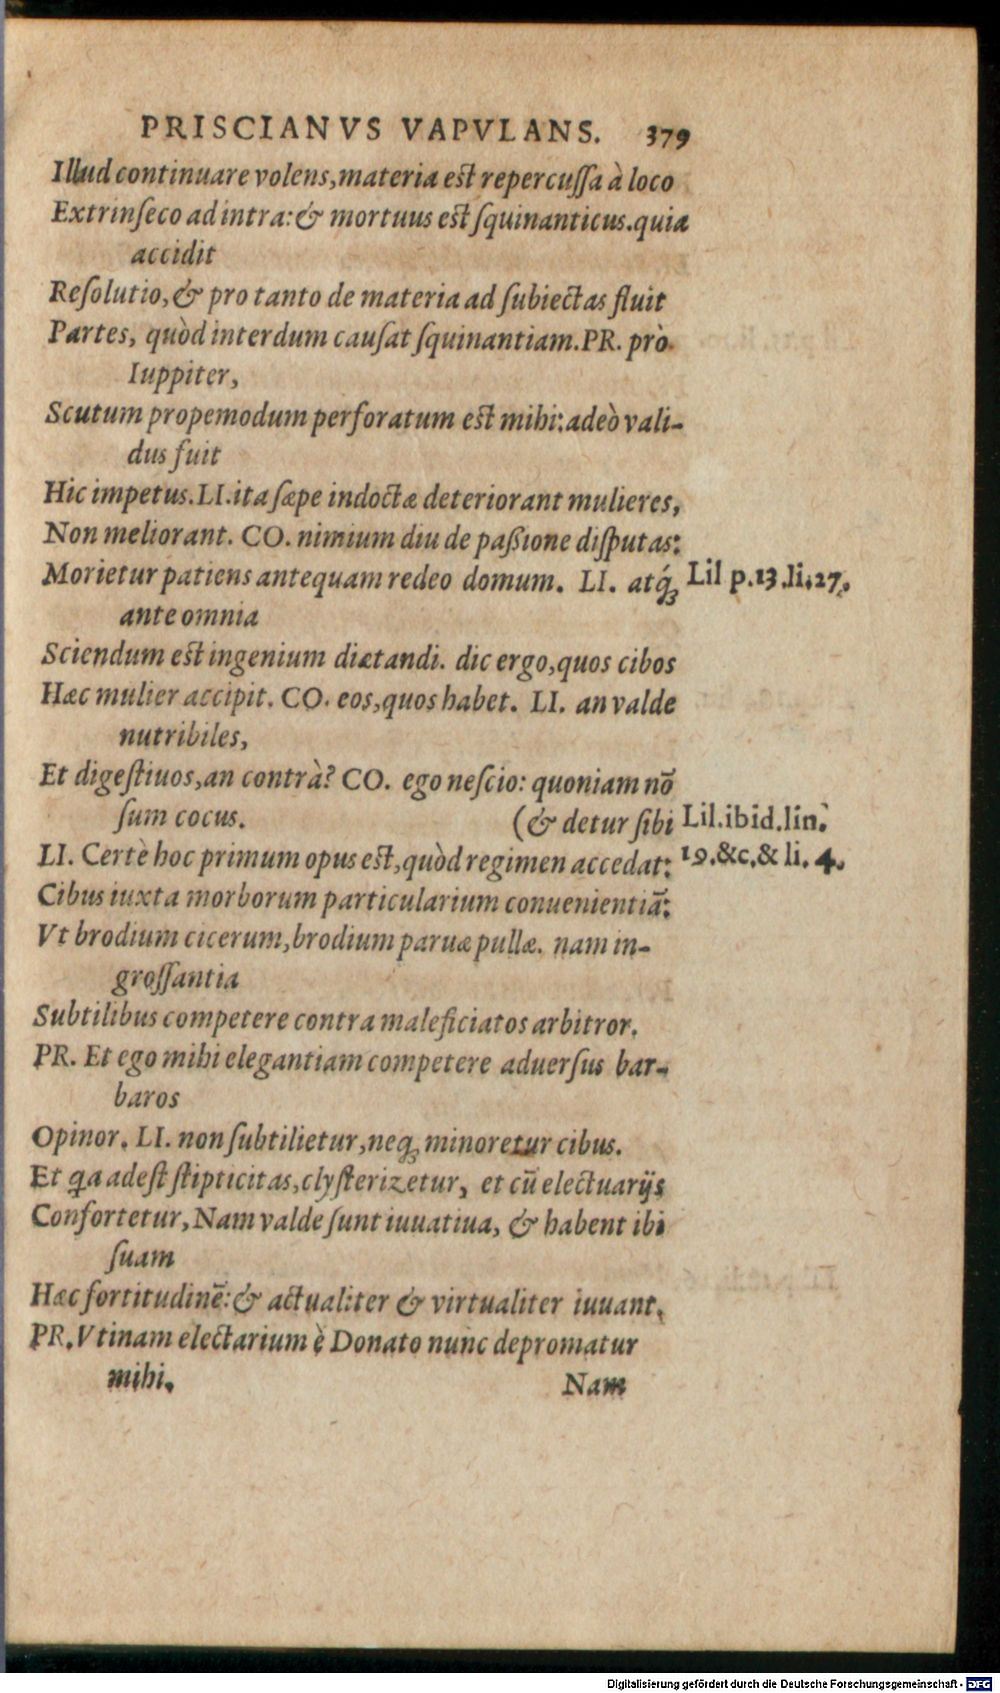 PRISCIANVS VAPVLANS. 379
Illud continuare volens, materia est repercuſſa à loco
Extrinſeco ad intra: & mortuus est ſquinanticus. quia
accidit
Reſolutio, & pro tanto de materia ad ſubiectas fluit
Partes, quòd interdum cauſat ſquinantiam. PR. prò
Iuppiter,
Scutum propemodum perforatum est mihi: adeò vali-
dus fuit
Hic impetus. LI. ita ſæpe indoctæ deteriorant mulieres,
Non meliorant. CO. nimium diu de paßione diſputas:
Morietur patiens antequam redeo domum. LI. atq́ꝫ Lil p.13.li.27.
ante omnia
Sciendum est ingenium diætandi. dic ergo, quos cibos
Hæc mulier accipit. CO. eos, quos habet. LI. an valde
nutribiles,
Et digeſtiuos, an contrà? CO. ego neſcio: quoniam nō
ſum cocus. (& detur ſibi Lil.ibid.lin.
LI. Certè hoc primum opus est, quòd regimen accedat: 19.&c.& li. 4.
Cibus iuxta morborum particularium conuenientiā:
Vt brodium cicerum, brodium paruæ pullæ. nam in-
groſſantia
Subtilibus competere contra maleficiatos arbitror.
PR. Et ego mihi elegantiam competere aduerſus bar-
baros
Opinor. LI. non ſubtilietur, neqꝫ minoretur cibus.
Et qa adeſt ſtipticitas, clyſterizetur, et cū electuarijs
Confortetur, Nam valde ſunt iuuatiua, & habent ibi
ſuam
Hæc fortitudinē: & actualiter & virtualiter iuuant.
PR. Vtinam electarium è Donato nunc depromatur
mihi. Nam
Digitalisierung gefördert durch die Deutsche Forschungsgemeinschaft - DFG